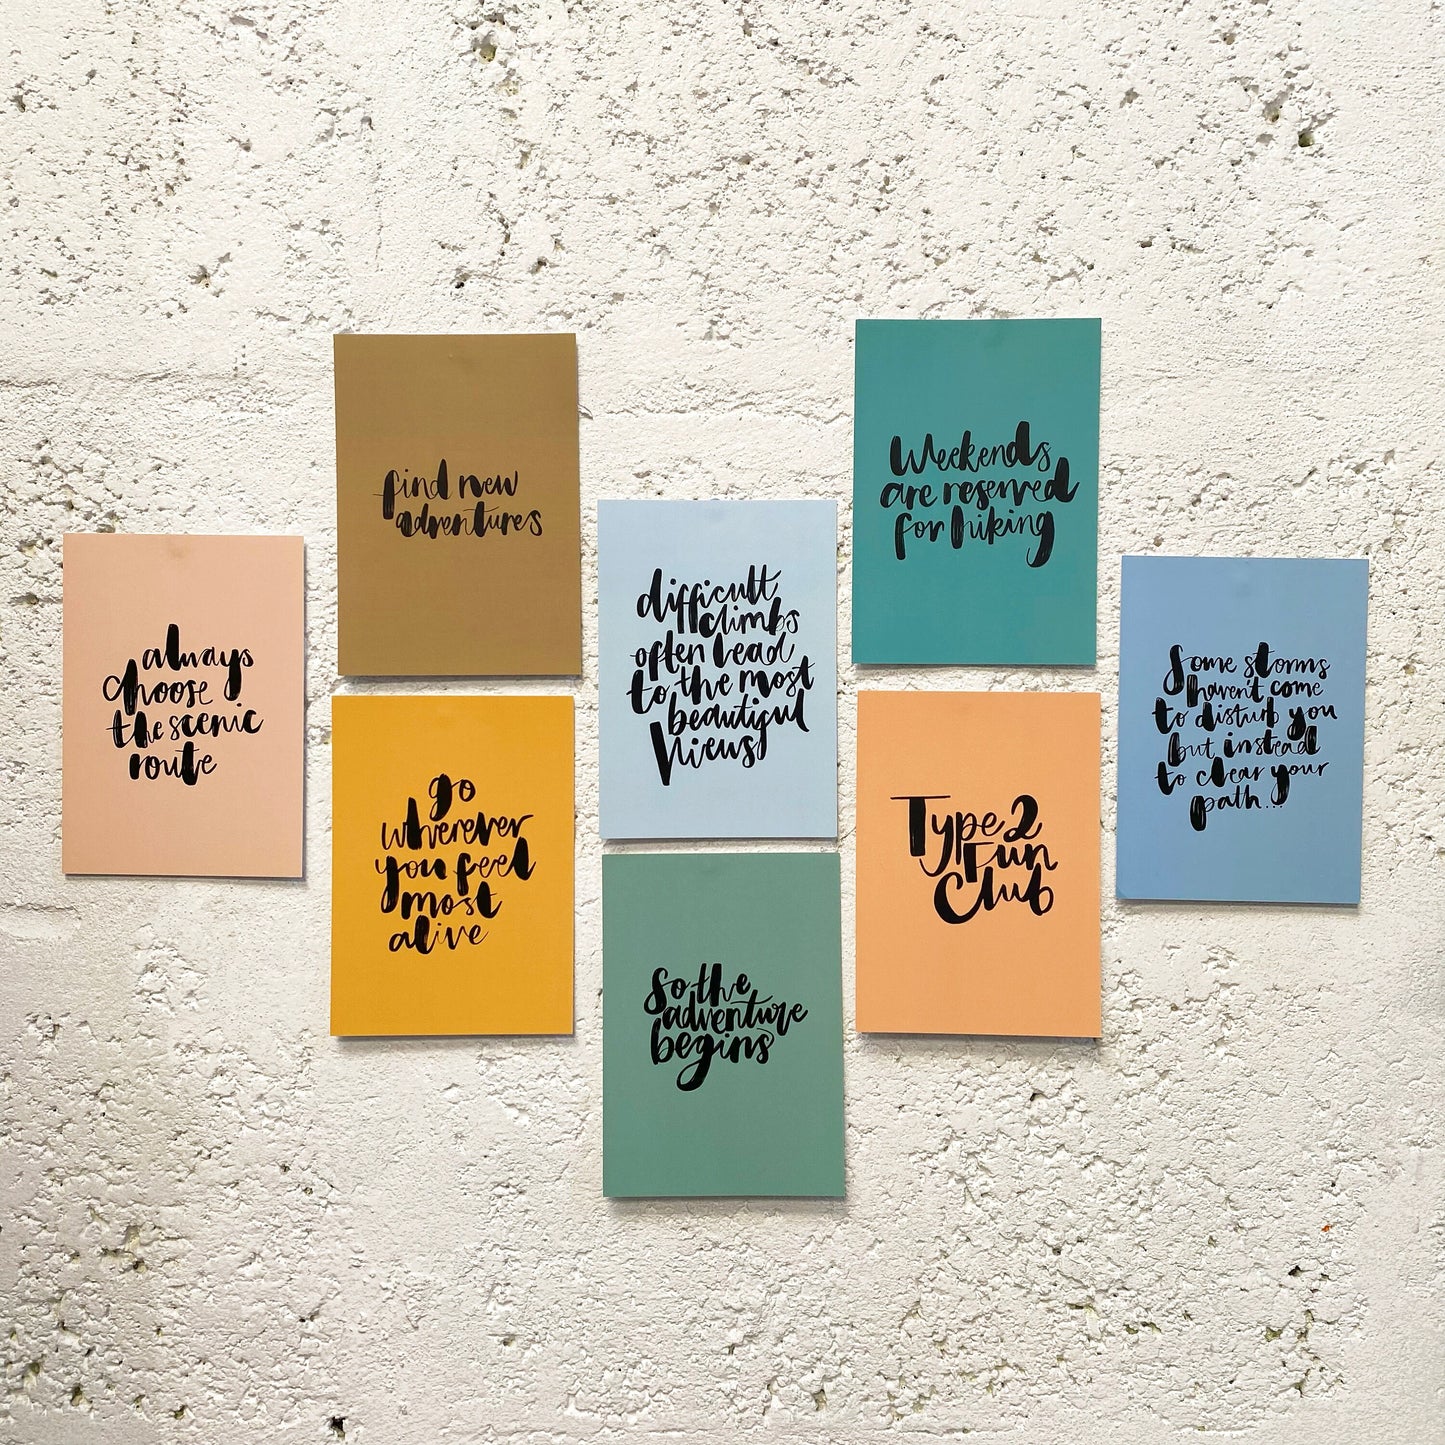 always
choose
the scenic
route
find new
adventures
go
wherever
you feel
most
alive
difficult
climbs
often lead
to the most
beautiful
views
So the
adventure
begins
Weekends
are reserved
for hiking
Type 2
Fun
Club
Some storms
haven't come
to disturb you
but instead
to clear your
path...